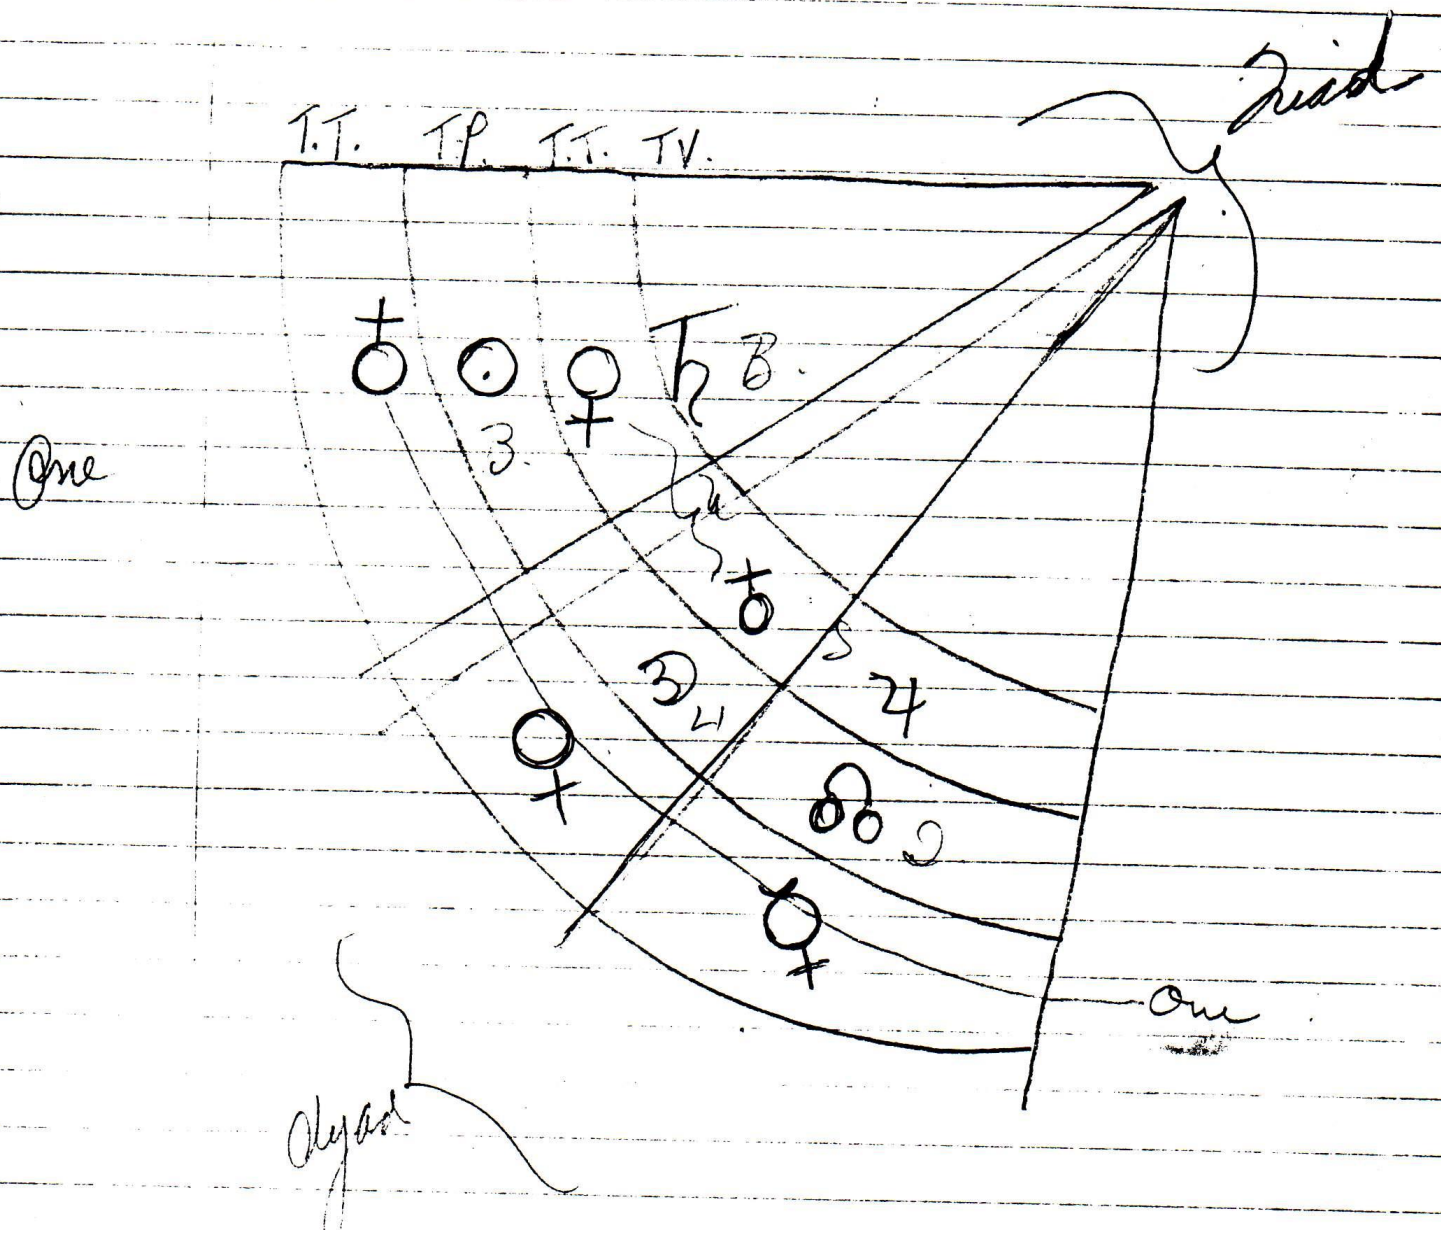 Triad
T.T. T.P. T.T. T.V.
♁ ☉ ♀ ♄ B.
3.
One
4
♁
5
☽ ♃
4
♀
☊ 2
☿
One
dyad